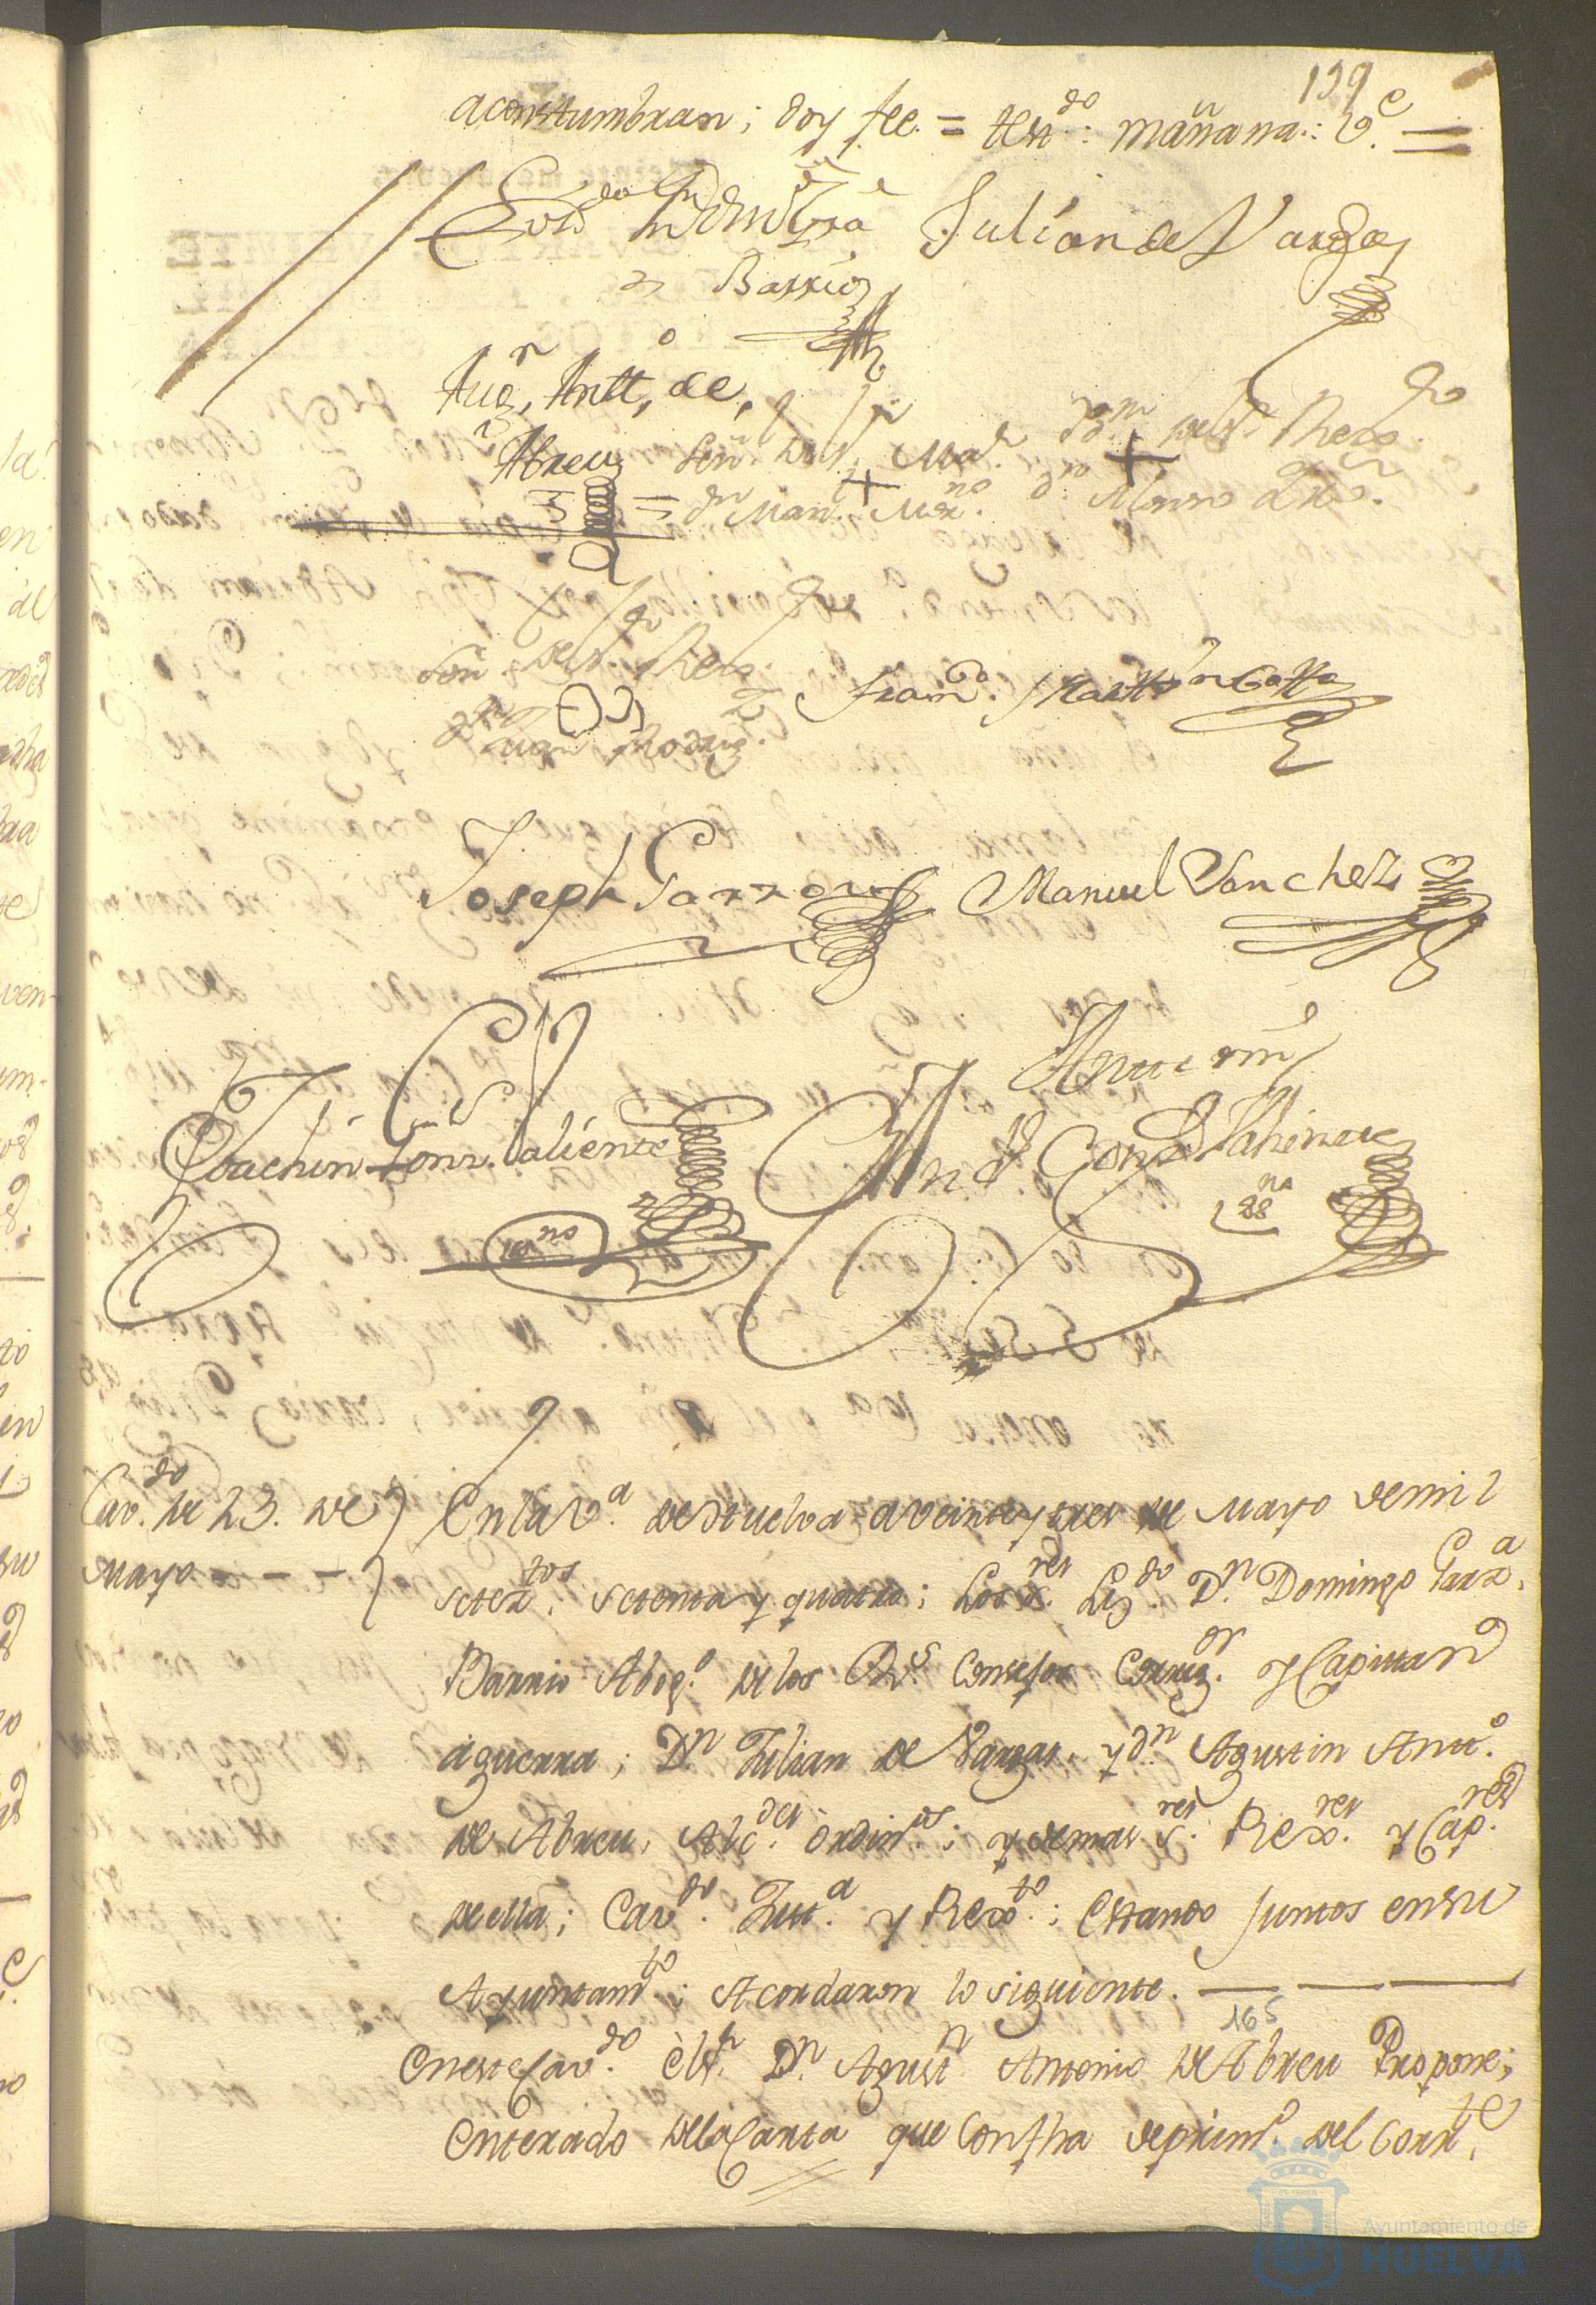 139
aconstumbran; doy fee. = test.do: mañana.: V.e =
Lizdo Dn Domgo Gra
Barrio
Julian de Vargas
Agn. Antt.o de
Abreu
Señ.l del Sr
Mad.
Señ.l Rexo.
= dn Man.l + Mrno.
dn Alonso
Señ. del Sr Rexo.
dn Juan Rodrig.
Fran.co Martin Gatto
Joseph Garzon
Manuel Sanchez
Joachin Gonz. Valiente
Antte mi
Gonz Valiente
ssno
Cav.do de 23. de
Mayo - - -
En la V.a de Huelva a veinte y tres de Mayo de mil
setez.tos setenta y quatro; Los S.res Liz.do D.n Domingo Garz.a
Barrio Abog.o de los R.s Consejos Correg.or y Capitan
a guerra; D.n Julian de Vargas, y d.n Agustin Ant.o
de Abreu, Alc.des ordin.os; y demas S.res Rexo.res y Cap.res
de ella; Cav.do Just.a y Rexo.to; estando juntos en su
Ayuntam.to; Acordaron lo siguiente. — — —
165
En este Cav.do el S.r D.n Agust.n Antonio de Abreu Propone;
Enterado de la Carta que con fha de prim.o del Corr.te
Ayuntamiento de
HUELVA